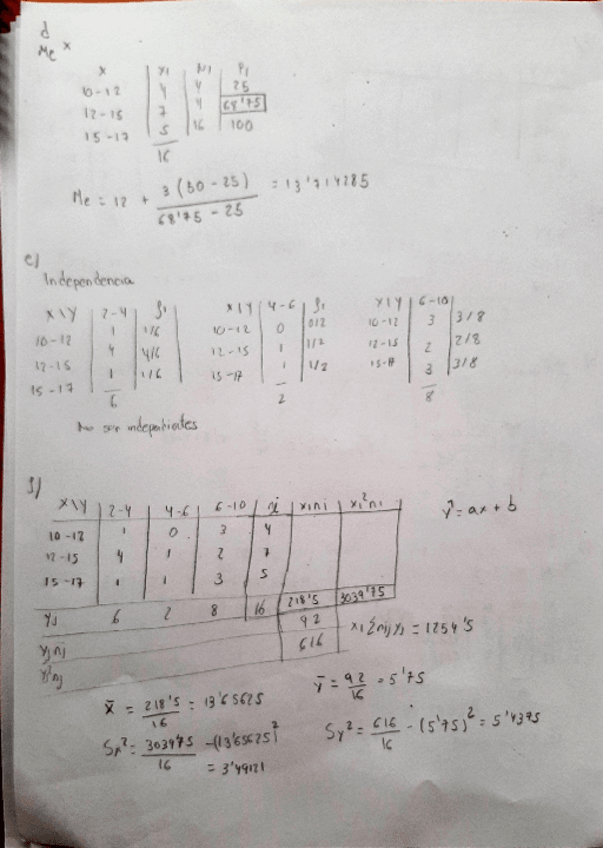 d
Me x
x | xi | Ni | Pi
10-12 | 4 | 4 | 25
12-15 | 7 | 4 | 68'75
15-17 | 5 | 16 | 100
16
Me = 12 + 3 (50 - 25) / 68'75 - 25 = 13'714285
e)
Independencia
X\Y | 2-4 | fi | X\Y | 4-6 | fi | X\Y | 6-10
10-12 | 1 | 1/6 | 10-12 | 0 | 0/2 | 10-12 | 3 | 3/8
12-15 | 4 | 4/6 | 12-15 | 1 | 1/2 | 12-15 | 2 | 2/8
15-17 | 1 | 1/6 | 15-17 | 1 | 1/2 | 15-17 | 3 | 3/8
6 | 2 | 8
No son
f)
X\Y | 2-4 | 4-6 | 6-10 | ni | xini | xi²ni
y = ax + b
10-12 | 1 | 0 | 3 | 4
12-15 | 4 | 1 | 2 | 7
15-17 | 1 | 1 | 3 | 5
yj | 6 | 2 | 8 | 16 | 218'5 | 3039'75
yjnj | 92
xi Σnij yj = 1254'5
yj²nj | 616
x̄ = 218'5 / 16 = 13'65625
ȳ = 92 / 16 = 5'75
Sx² = 3039'75 / 16 - (13'65625)² = 3'49121
Sy² = 616 / 16 - (5'75)² = 5'4375